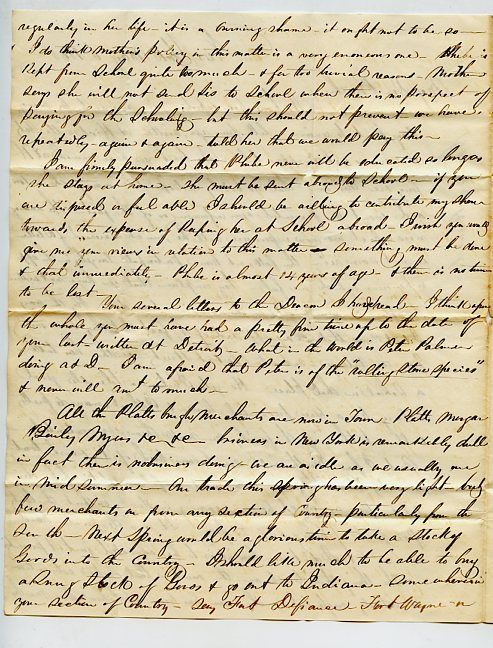 regularly in her life – it is a burning shame – it ought not to be so —
I do think Mother's policy in this matter is a very erroneous one – Phebe is
kept from School quite too much – & for too trivial reasons – Mother
says she will not send Sis to School when there is no prospect of
paying for the Schooling – but this should not prevent – we have
repeatedly – again & again – told her that we would pay this –
I am firmly pursuaded that Phebe never will be educated so long as
she stays at home – She must be sent abroad to School – if you
are disposed or feel able I should be willing to contribute my share
towards the expense of keeping her at School abroad I wish you would
give me your views in relation to this matter – something must be done
& that immediately – Phebe is almost 14 years of age & there is no time
to be lost
Your several letters to the Deacon I have read – I think upon
the whole you must have had a pretty fine time up to the date of
your last written at Detroit – What in the World is Peter Palmer
doing at D – I am afraid that Peter is of the "rolling stone species"
& never will amt to much –
All the Plattsburgh Merchants are now in Town Platt, Morgan
Baily Myers &c &c – business in New York is remarkably dull
in fact there is no business doing – we are as idle as we usually are
in mid summer – Our trade this spring has been very light – but
few merchants in from any section of Country – particularly from the
South – Next Spring would be a glorious time to take a stock of
Goods into the Country – I should like much to be able to buy
a snug Stock of Goods & go out to Indiana – somewhere in
your section of Country – say Fort Defiance Fort Wayne – or